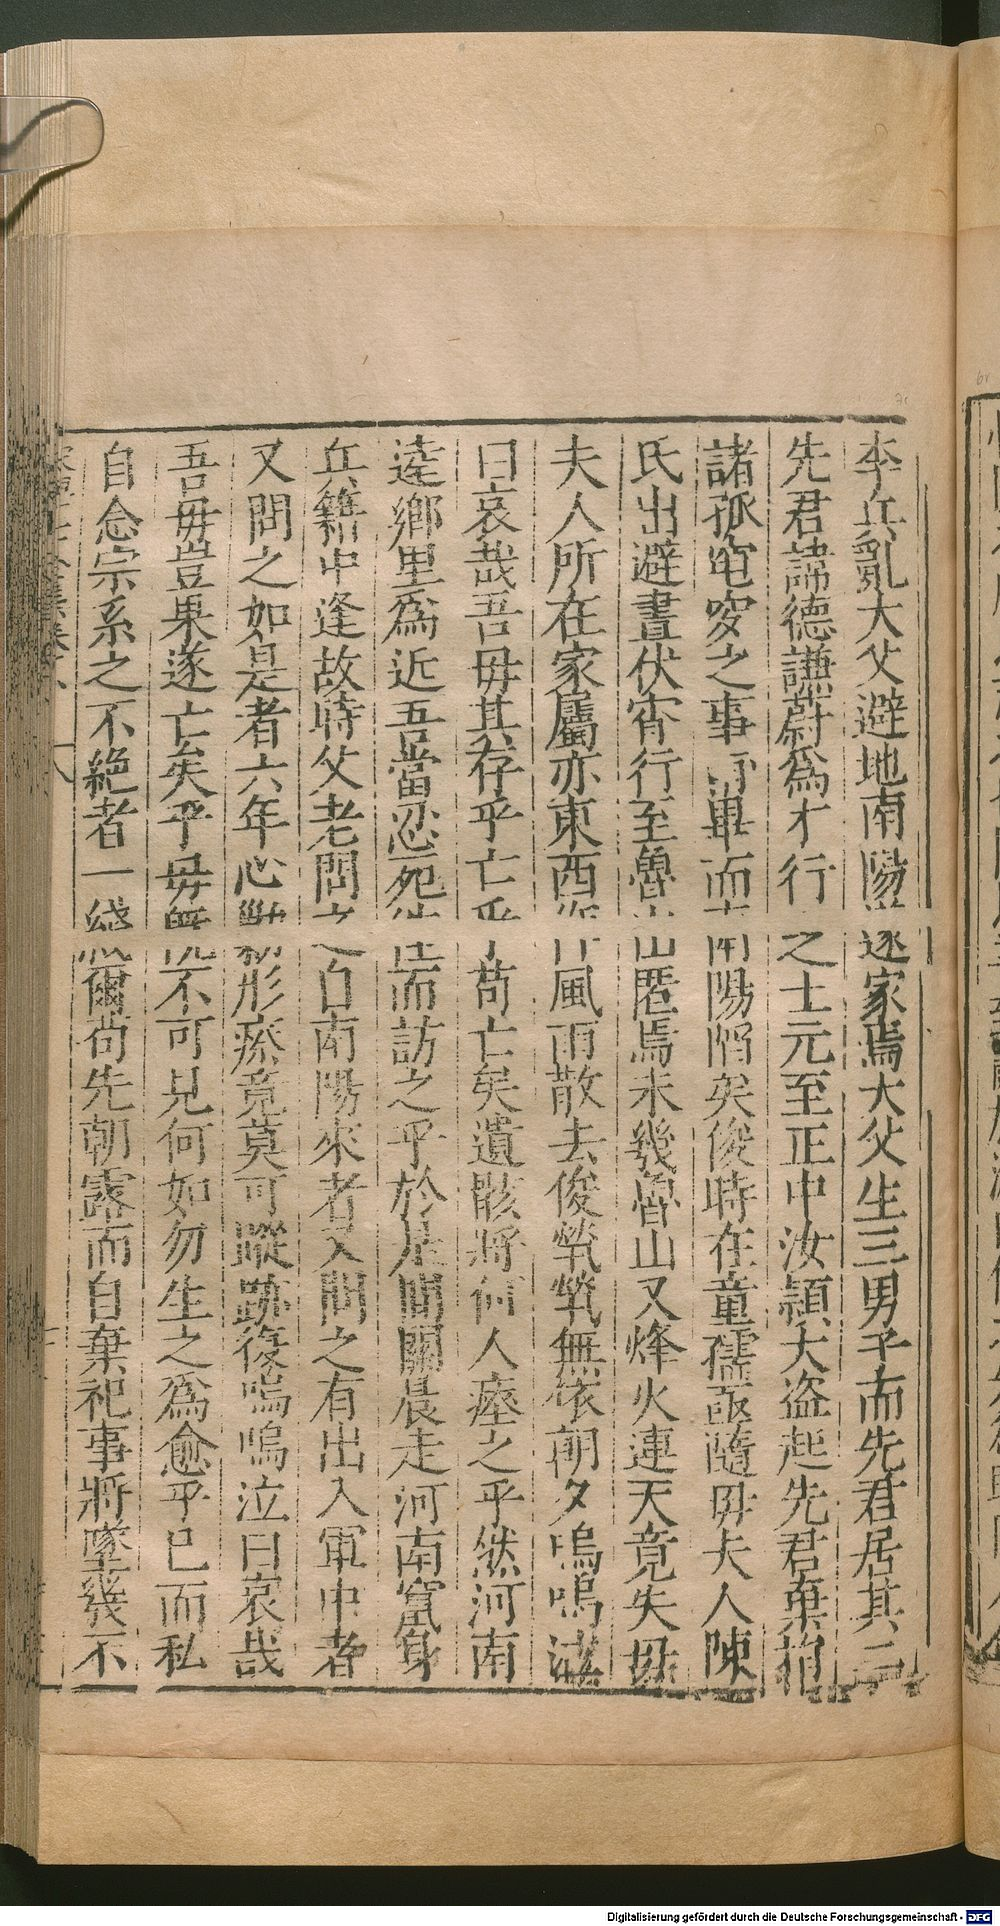 李兵亂大父避地南陽遂家焉大父生三男子而先君居其二
先君諱德謙蔚爲才行之士元至正中汝頴大盗起先君棄捐
諸孤窀穸之事畢而南陽陷矣俊時在童孺亟隨毋夫人陳
氏出避晝伏宵行至魯山匿焉未幾魯山又烽火連天竟失毋
夫人所在家屬亦東西作風雨散去俊煢煢無依朝夕嗚嗚泣
曰哀哉吾毋其存乎亡乎苟亡矣遺骸將何人瘞之乎然河南
逹鄉里爲近吾當忍死往而訪之乎於是間關晨走河南竄身
兵籍中逢故時父老問之自南陽來者又問之有出入軍中者
又問之如是者六年心勦形瘵竟莫可蹤跡復嗚嗚泣曰哀哉
吾毋豈果遂亡矣乎毋旣不可見何如勿生之爲愈乎已而私
自念宗系之不絶者一綫爾苟先朝露而自棄祀事將墜幾不
Digitalisierung gefördert durch die Deutsche Forschungsgemeinschaft - DFG